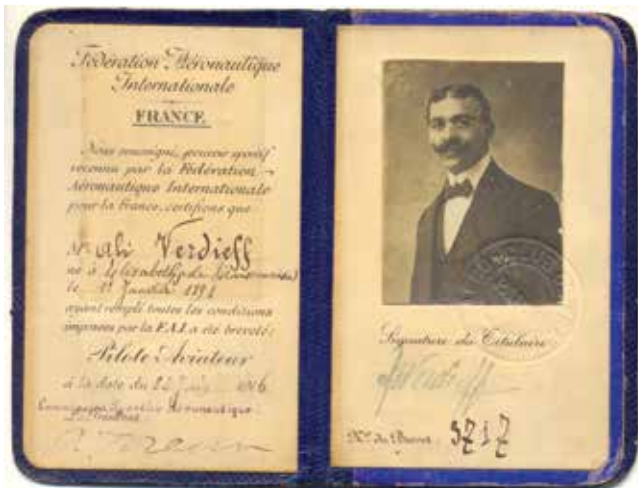 Fédération Aéronautique
Internationale
FRANCE
Nous soussigné, pouvoir sportif
reconnu par la Fédération
Aéronautique Internationale
pour la France, certifions que
Mr Ali Verdieff
né à
le 1er Janvier 1891
ayant rempli toutes les conditions
imposées par la F.A.I. a été breveté:
Pilote-Aviateur
à la date du 1916
Signature du Titulaire
No du Brevet: 3717